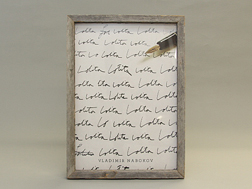 Lolita Lolita Lolita Lolita
Lolita Lolita Lolita
Lolita Lolita Lolita
Lolita Lolita Lolita
Lolita Lolita Lolita
Lolita Lolita Lolita
Lolita Lolita Lolita
Lolita Lolita Lolita
Lolita Lolita Lolita
Lolita Lolita Lolita
VLADIMIR NABOKOV